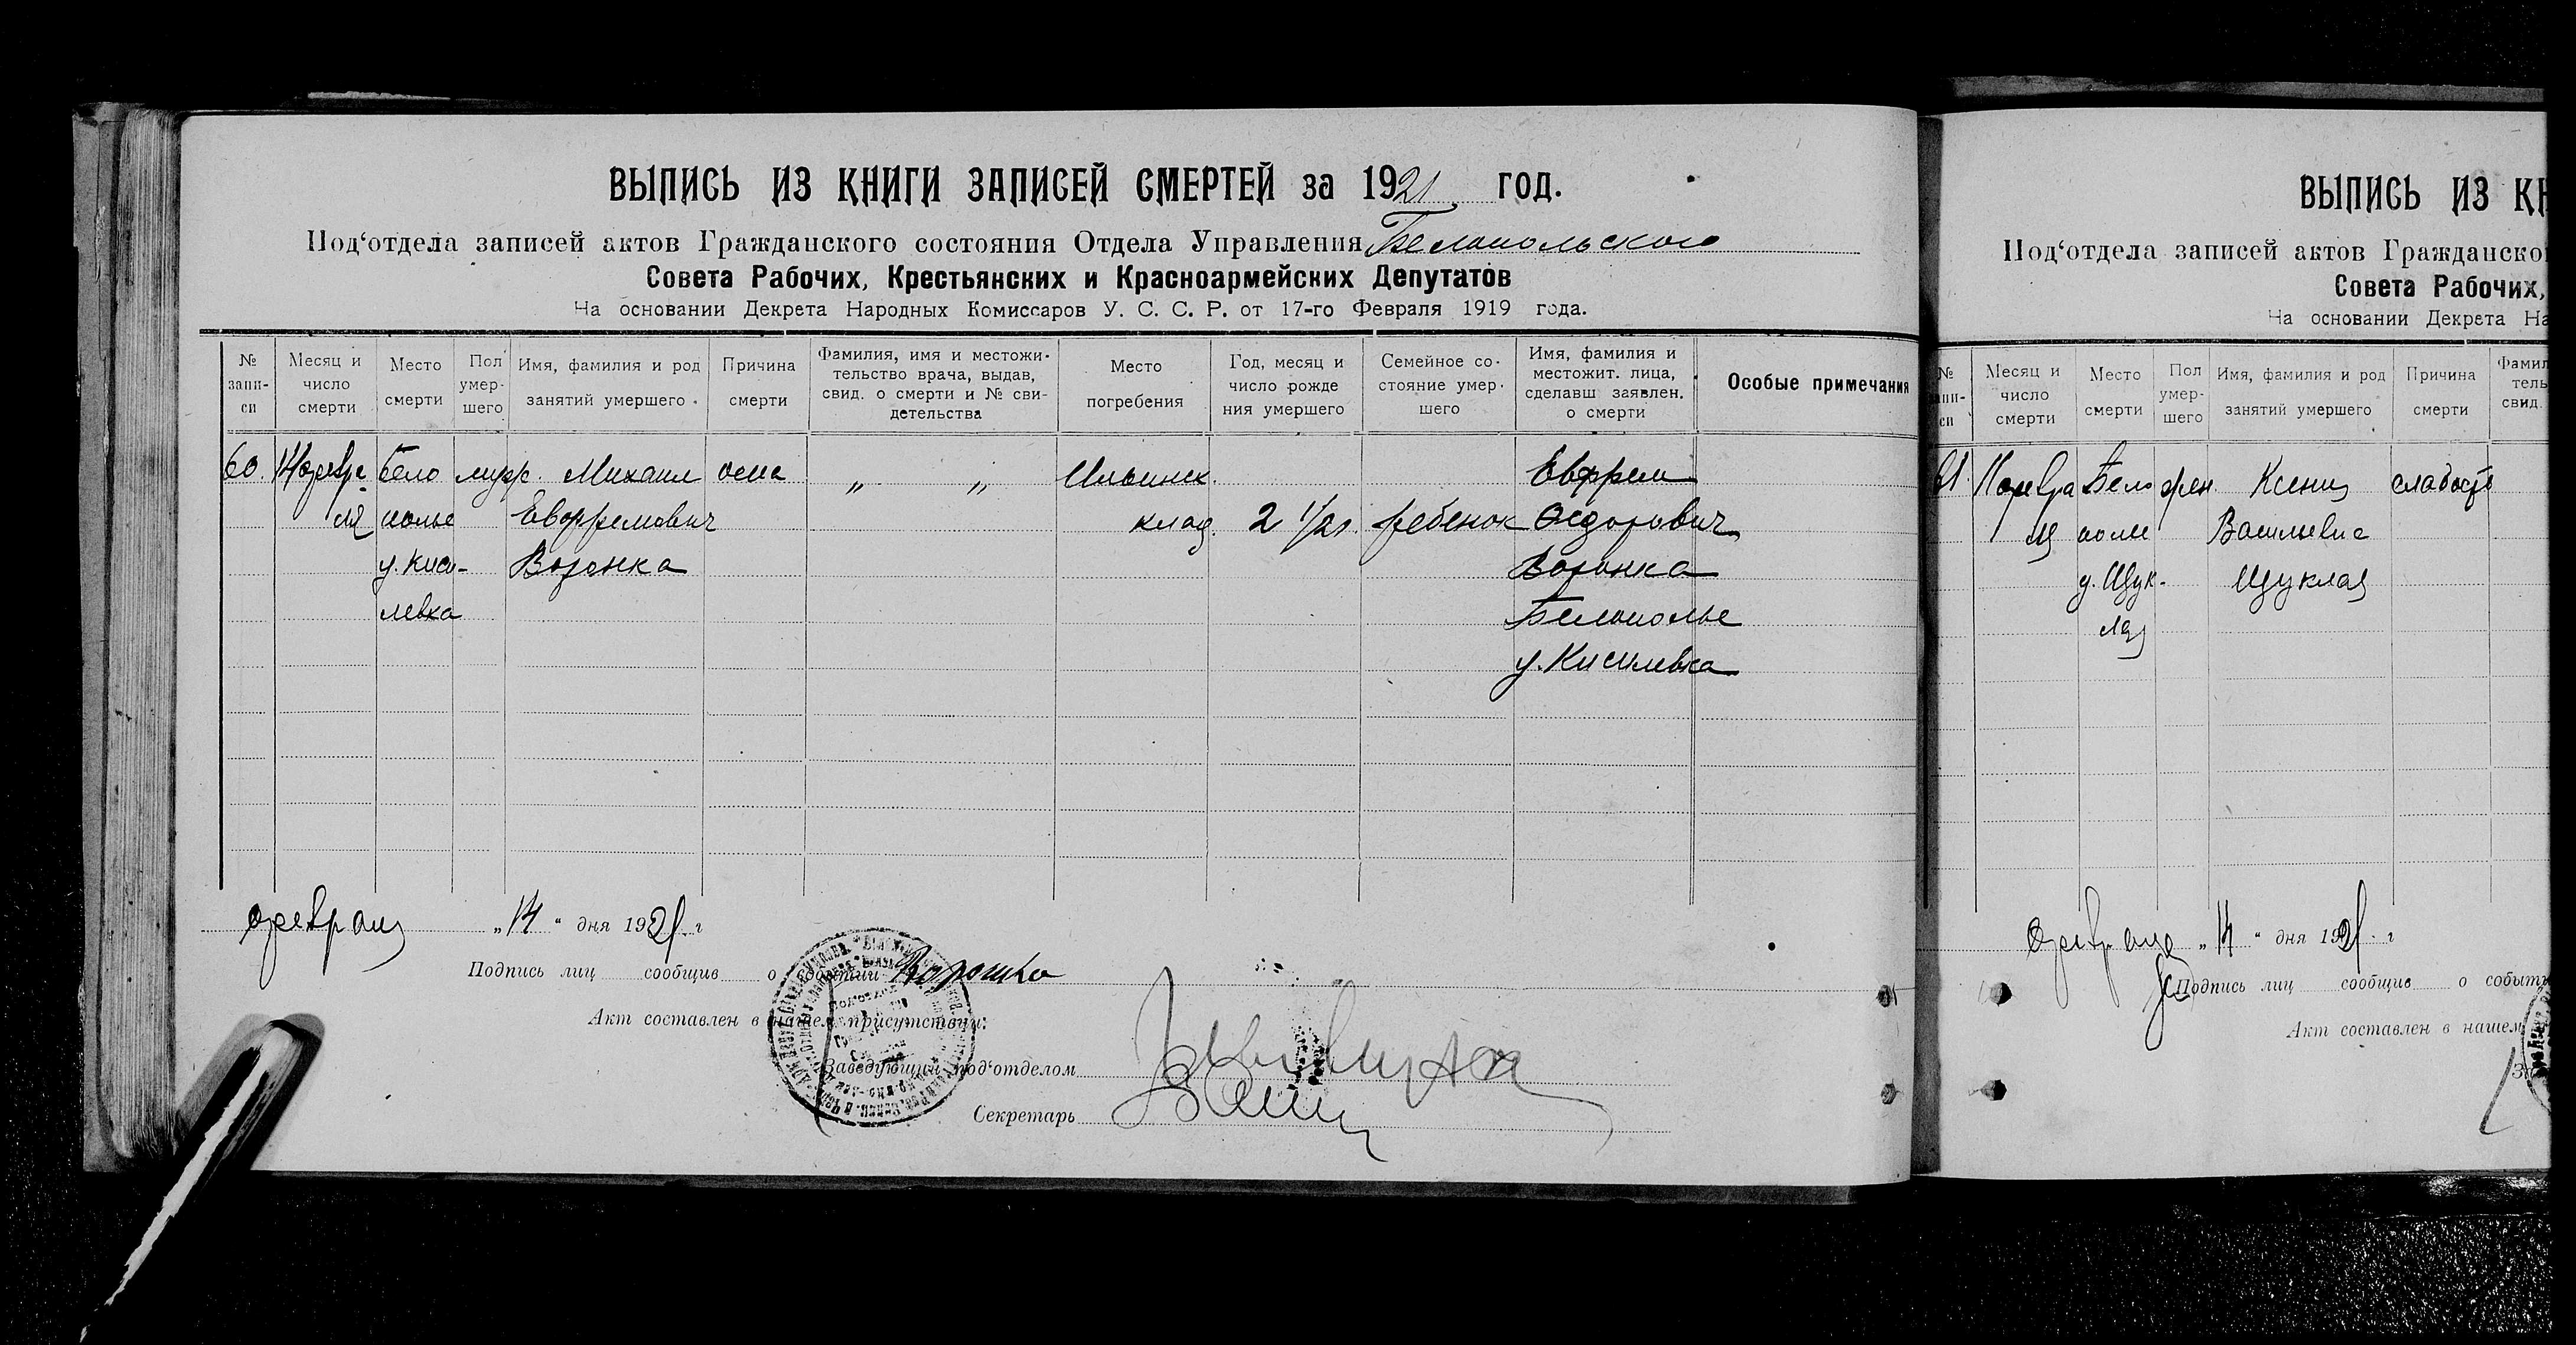 ВЫПИСЬ ИЗ КНИГИ ЗАПИСЕЙ СМЕРТЕЙ за 1921 год.
Под‘отдела записей актов Гражданского состояния Отдела Управления Белопольского
Совета Рабочих, Крестьянских и Красноармейских Депутатов
На основании Декрета Народных Комиссаров У. С. С. Р. от 17-го Февраля 1919 года.
№ запи- си
Месяц и число смерти
Место смерти
Пол умер- шего
Имя, фамилия и род занятий умершего
Причина смерти
Фамилия, имя и местожи- тельство врача, выдав, свид. о смерти и № сви- детельства
Место погребения
Год, месяц и число рожде ния умершего
Семейное со- стояние умер- шего
Имя, фамилия и местожит. лица, сделавш заявлен. о смерти
Особые примечания
60. 14 февра Бело муж. Михаил оспа „ „ Ильинск. Евфрем
ля полье Евфремович клад. 2 1/2 г. ребенок Федорович
у. Киси- Воронка Воронка
левка Белополье
у. Кисилевка
февраля „14“ дня 1921 г
Подпись лиц сообщив о событии
Акт составлен в нашем присутствии:
Заведующий под‘отделом
Секретарь
ВЫПИСЬ ИЗ КН
Под‘отдела записей актов Гражданско
Совета Рабочих,
На основании Декрета На
№ апи- си
Месяц и число смерти
Место смерти
Пол умер- шего
Имя, фамилия и род занятий умершего
Причина смерти
Фамил тель свид.
61. 11 февра Бело жен. Ксения слабость
ля полье Васильевна
у. Щук- Щуклая
лая
февраля „14“ дня 1921 г
Подпись лиц сообщив о событ
Акт составлен в нашем